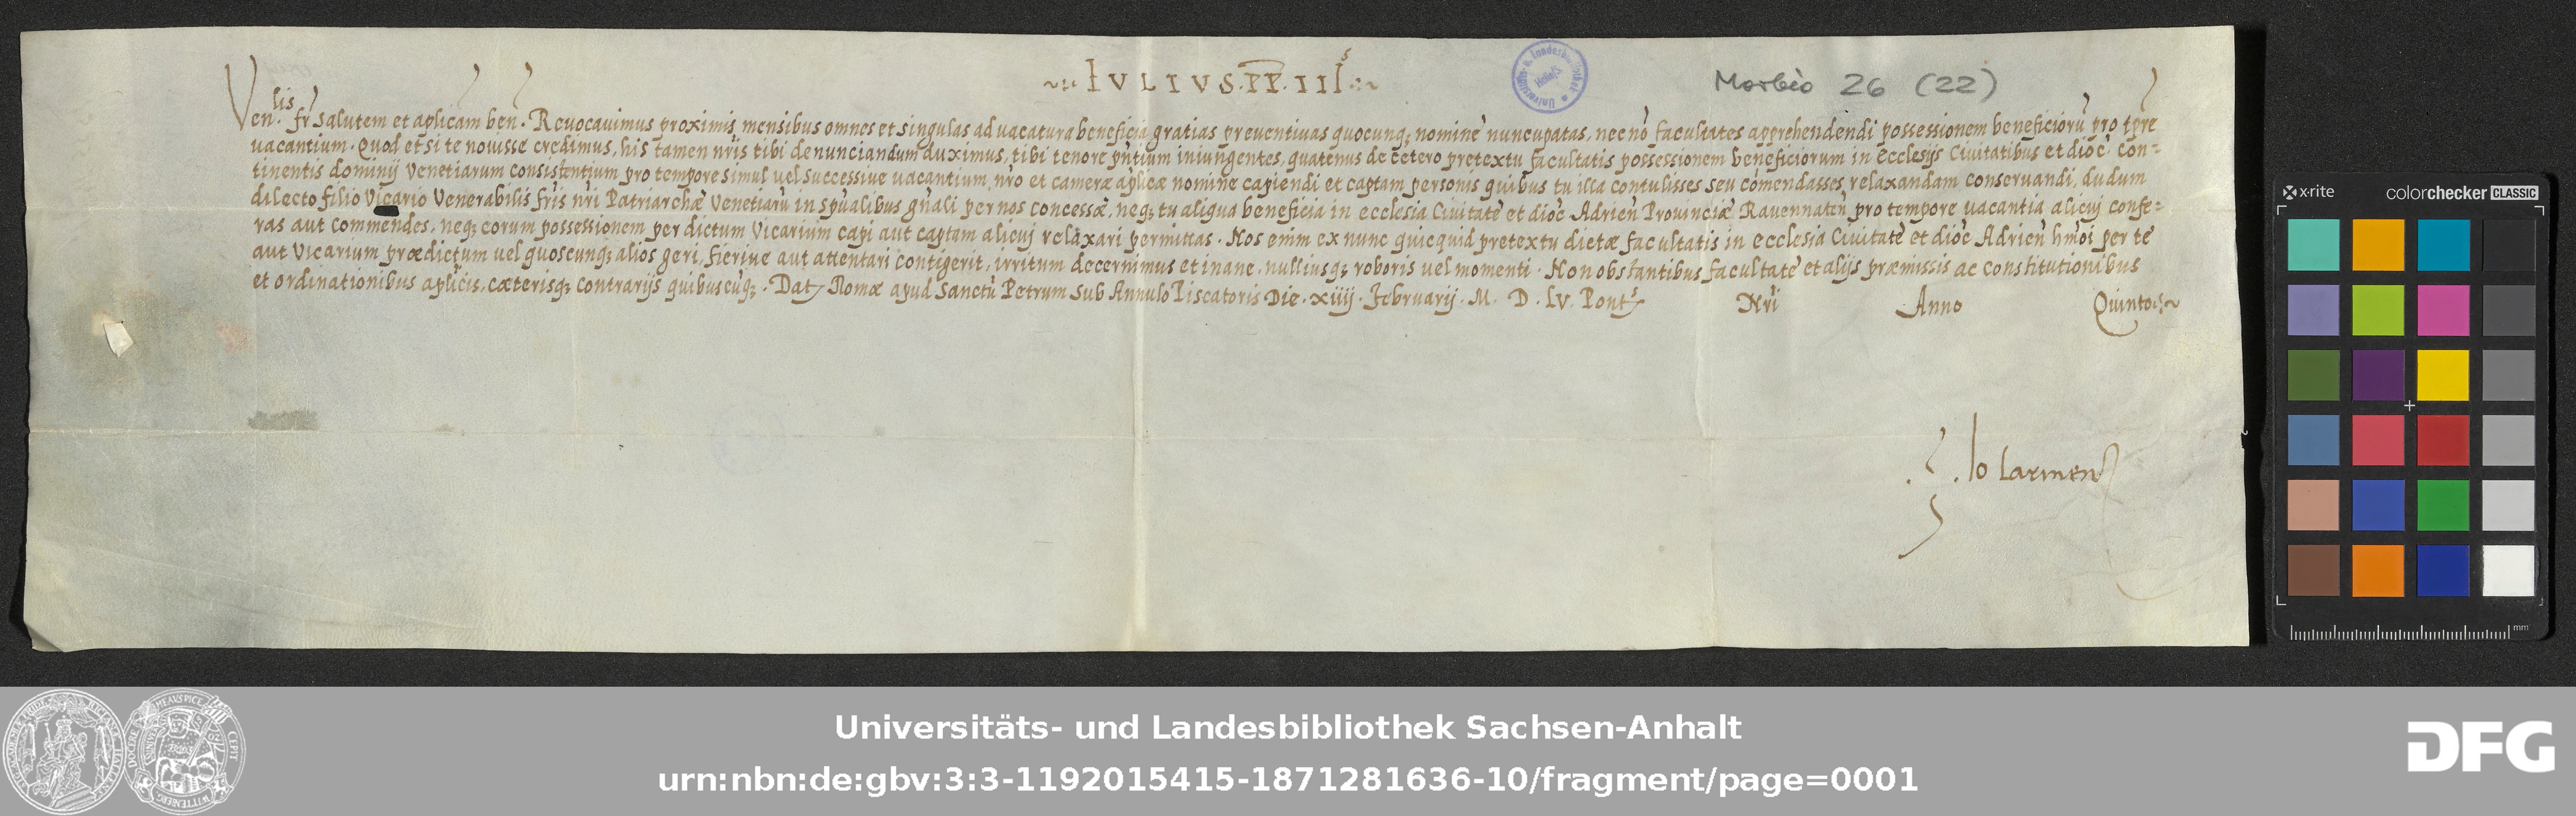 IVLIVS. PP. III.
Morbio 26 (22)
Ven. lis fr̃ Salutem et aplicam ben. Reuocauimus proximis mensibus omnes et singulas ad uacatura beneficia gratias preuentiuas quocunq; nomine nuncupatas, nec nõ facultates apprehendendi possessionem beneficiorũ pro tpre
uacantium. Quod etsi te nouisse credimus, his tamen nr̃is tibi denunciandum duximus, tibi tenore pñtium iniungentes, quatenus de cetero pretextu facultatis possessionem beneficiorum in ecclesijs Ciuitatibus et dioc̃ con=
tinentis dominij Venetiarum consistentium pro tempore simul uel successiue uacantium, nr̃o et cameræ aplicæ nomine capiendi et captam personis quibus tu illa contulisses seu cõmendasses, relaxandam conseruandi, dudum
dilecto filio Vicario Venerabilis fr̃is nr̃i Patriarchæ Venetiarũ in spũalibus gñali per nos concessæ, neq; tu aliqua beneficia in ecclesia Ciuitatẽ et dioc̃ Adrieñ Prouinciæ Rauennateñ pro tempore uacantia alicuj confe=
ras aut commendes, neq; eorum possessionem per dictum Vicarium capi aut captam alicuj relaxari permittas. Nos enim ex nunc quicquid pretextu dictæ facultatis in ecclesia Ciuitatẽ et dioc̃ Adrieñ hm̃oi per te
aut Vicarium prædictum uel quoscunq; alios geri, fieriue aut attentari contigerit, irritum decernimus et inane, nulliusq; roboris uel momenti. Non obstantibus facultatẽ et alijs præmissis ac constitutionibus
et ordinationibus aplicis, cæterisq; contrarijs quibuscũq;. Dat. Romæ apud Sanctũ Petrum Sub Annulo Piscatoris Die. xiiij. Februarij. M. D. LV. Pont. Nr̃i Anno Quinto
Io Larmen
x-rite colorchecker CLASSIC
mm
Universitäts- und Landesbibliothek Sachsen-Anhalt
urn:nbn:de:gbv:3:3-1192015415-1871281636-10/fragment/page=0001
DFG